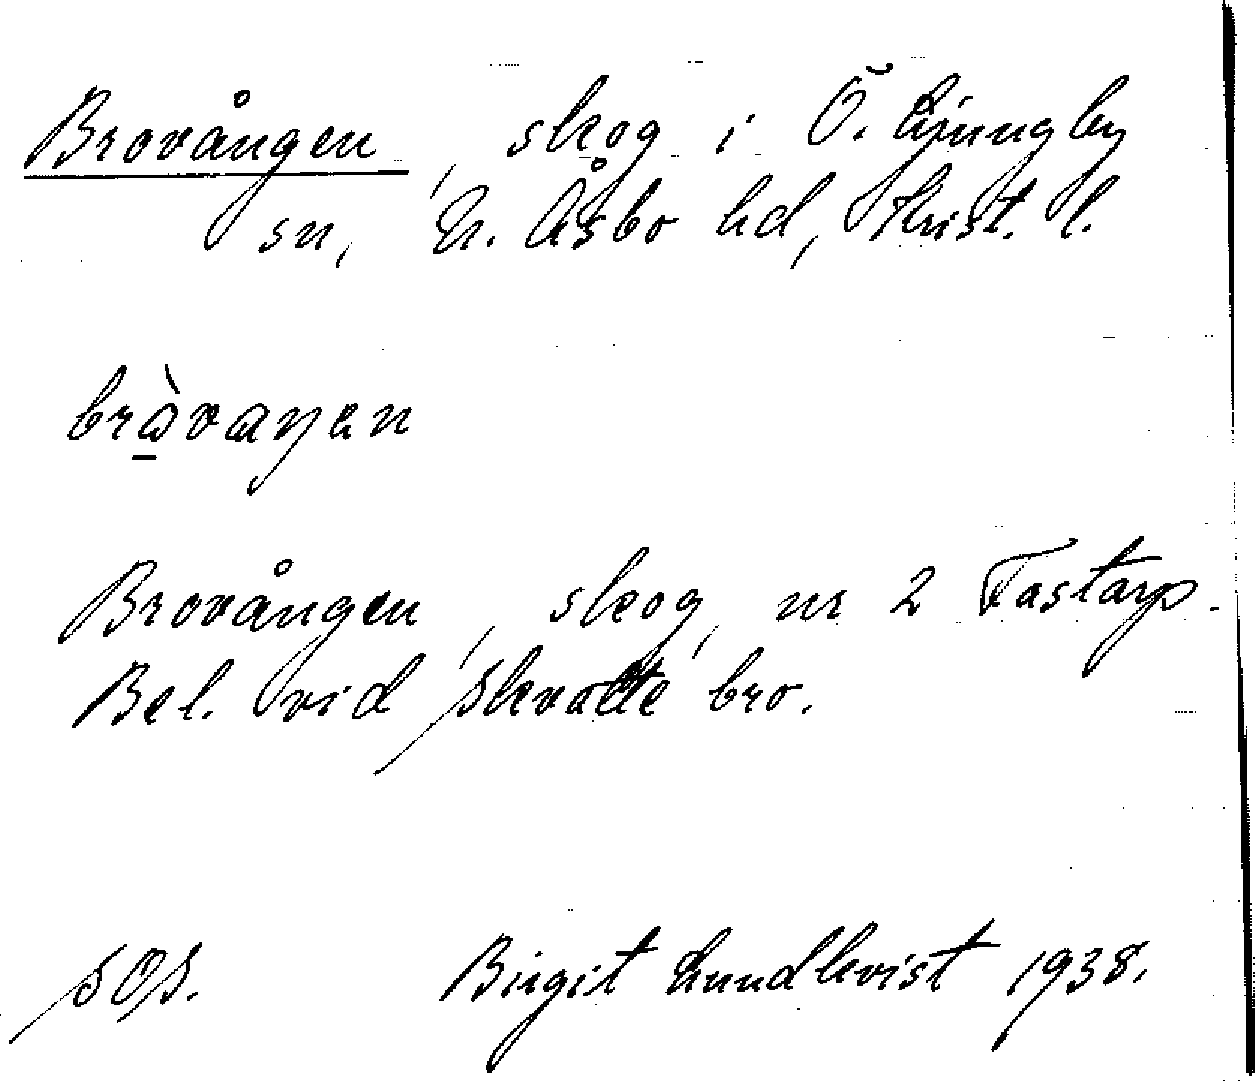 Brovången, skog i Ö. Ljungby
sn, N. Åsbo hd, Krist. l.
bròvaŋen
Brovången, skog, nr 2 Tostarp.
Bel. vid bro.
SOS. Birgit Lundkvist 1938.